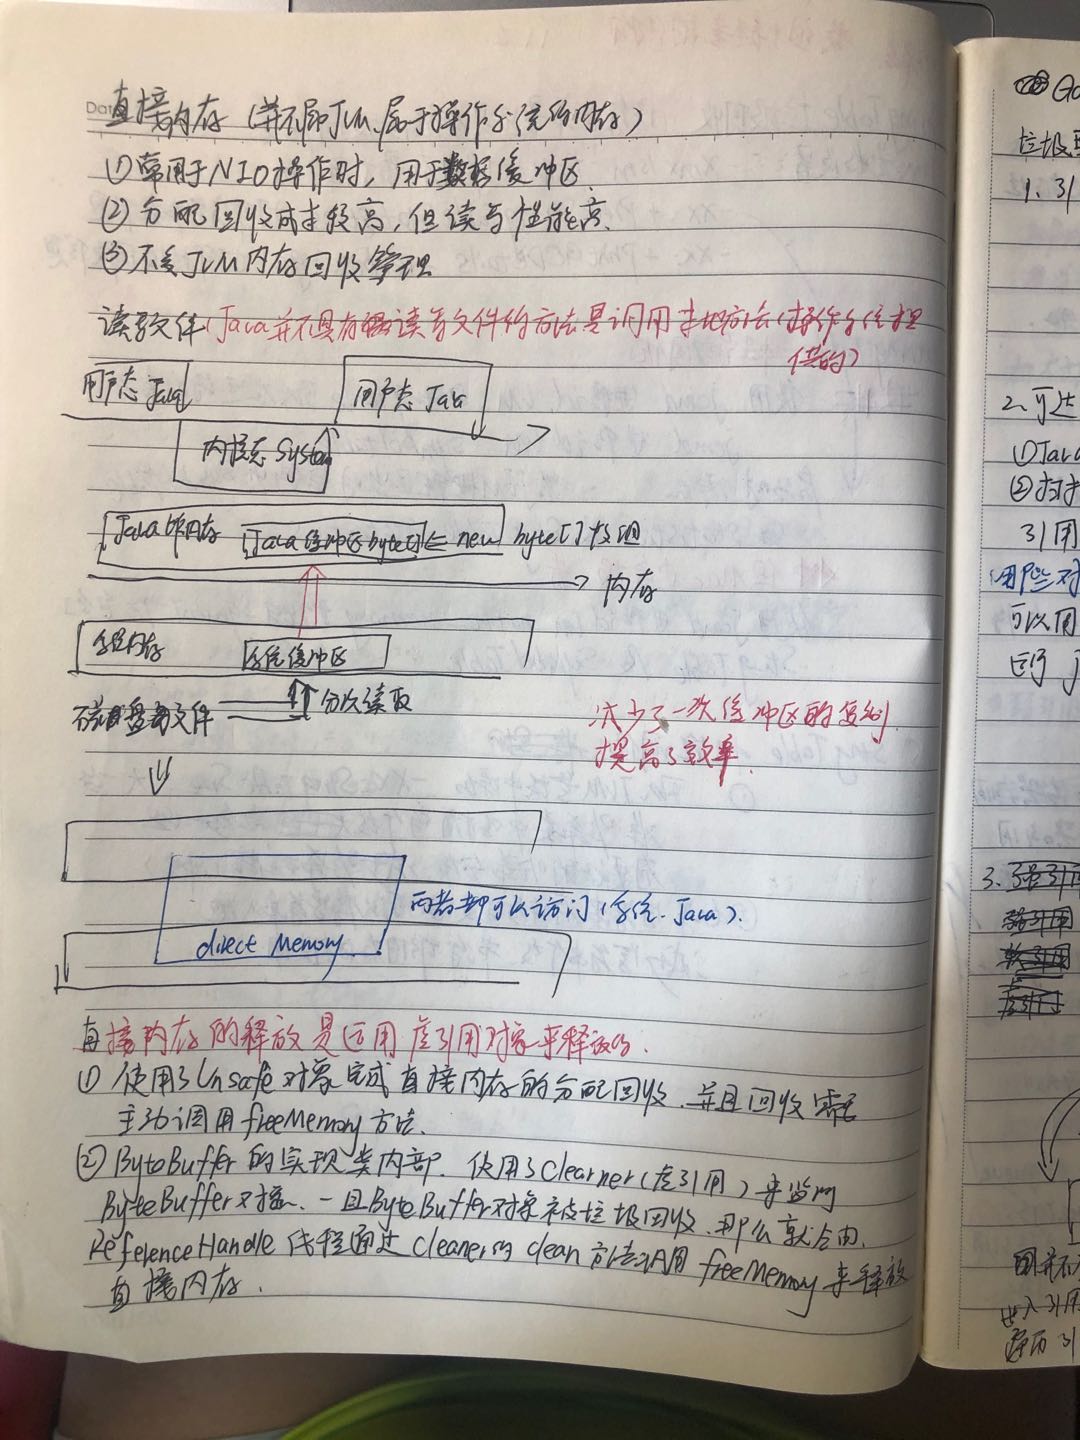 直接内存（并不属JVM、属于操作系统的内存）
①常用于NIO操作时，用于数据缓冲区.
②分配回收成本较高，但读写性能高.
③不受JVM内存回收管理
读写文件：Java并不具有读写文件的方法是调用本地方法（操作系统提
供的）
用户态 Java
用户态 Java
内核态 System
Java堆内存
Java缓冲区byte[] ⇐ new byte[]数组
内存
系统内存
系统缓冲区
磁盘文件
分次读取
减少了一次缓冲区的复制
提高了效率.
两者都可以访问（系统、Java）.
direct Memory
直接内存的释放是运用虚引用对象来释放的.
① 使用了Unsafe对象完成直接内存的分配回收、并且回收需
主动调用freeMemory方法.
② ByteBuffer的实现类内部、使用了Clearner（虚引用）来监测
ByteBuffer对象、一旦ByteBuffer对象被垃圾回收、那么就会由
ReferenceHandle线程通过cleaner的clean方法调用freeMemory来释放
直接内存.
垃圾
1、引
2、可达
①Java
②扫描
引用
可以用
3、强引用
软引用